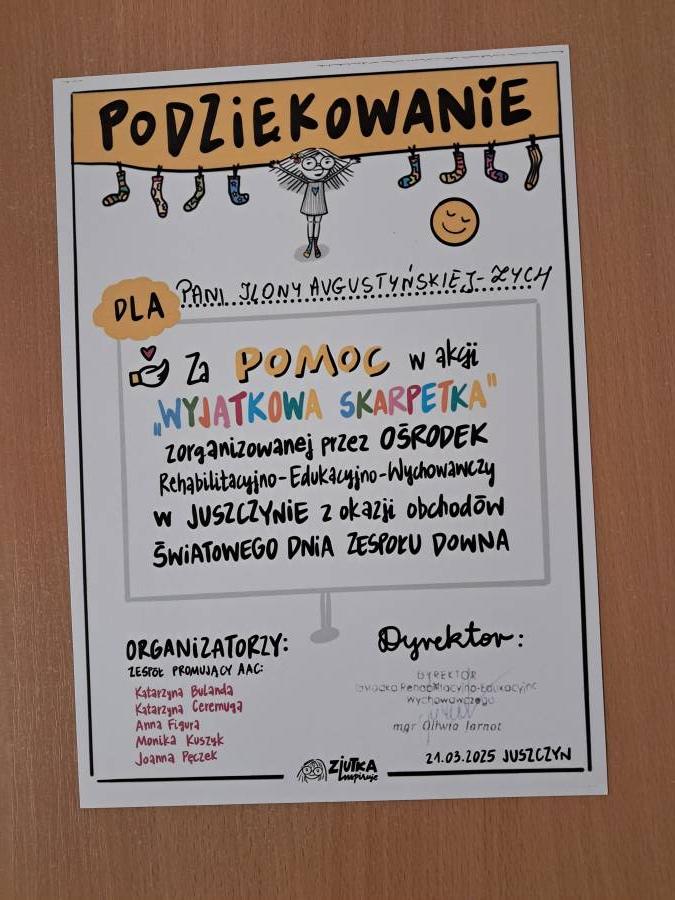 PODZIĘKOWANIE
DLA PANI ILONY AUGUSTYŃSKIEJ-ŻYCH
Za POMOC w akcji
„WYJĄTKOWA SKARPETKA"
zorganizowanej przez OŚRODEK
Rehabilitacyjno-Edukacyjno-Wychowawczy
w JUSZCZYNIE z okazji obchodów
ŚWIATOWEGO DNIA ZESPOŁU DOWNA
ORGANIZATORZY:
ZESPÓŁ PROMUJĄCY AAC:
Katarzyna Bulanda
Katarzyna Ceremuga
Anna Figura
Monika Kuszyk
Joanna Pęczek
Dyrektor:
DYREKTOR
Ośrodka Rehabilitacyjno-Edukacyjno
Wychowawczego
mgr Oliwia Jarnot
21.03.2025 JUSZCZYN
ZJUTKA
inspiruje